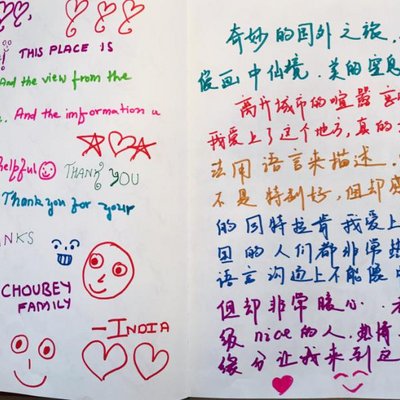 THIS PLACE IS
And the view from the
And the information u
helpful
THANK YOU
Thankyou for your
CHOUBEY
FAMILY
-INDIA
奇妙的国外之旅,
假画中仙境.美的窒息
离开城市的喧嚣
我爱上了这个地方,真的
法用语言来描述.
不是特别好,但却
的因特拉肯我爱上
国的人们都非常热
语言沟通上不能很
但却非常暖心..
级nice的人.热情
缘分让我来到这